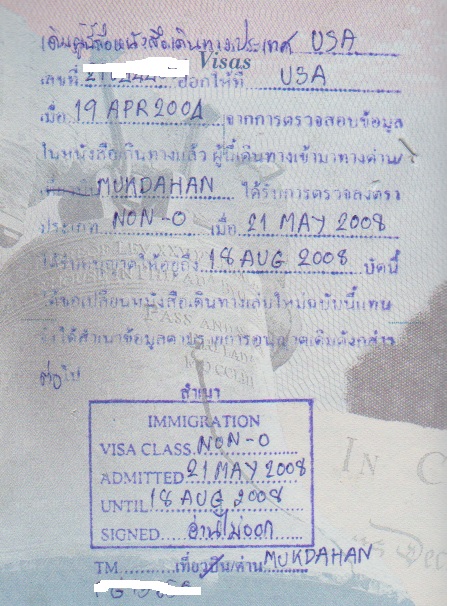 เดิมผู้นี้ถือหนังสือเดินทางประเทศ USA
Visas
เลขที่ ออกให้ที่ USA
เมื่อ 19 APR 2004 จากการตรวจสอบข้อมูล
ในหนังสือเดินทางแล้ว ผู้นี้เดินทางเข้ามาทางด่าน
MUKDAHAN ได้รับการตรวจลงตรา
ประเภท NON-O เมื่อ 21 MAY 2008
ได้รับอนุญาตให้อยู่ถึง 18 AUG 2008 บัดนี้
ได้ขอเปลี่ยนหนังสือเดินทางเล่มใหม่ฉบับนี้แทน
จึงได้สำเนาข้อมูลตามรายการอนุญาตเดิมดังกล่าว
ต่อไป
PASS AND
สำเนา
IMMIGRATION
VISA CLASS NON-O
ADMITTED 21 MAY 2008
UNTIL 18 AUG 2008
SIGNED อ่านไม่ออก
IN C
Dec
TM. เที่ยวบิน/ด่าน MUKDAHAN